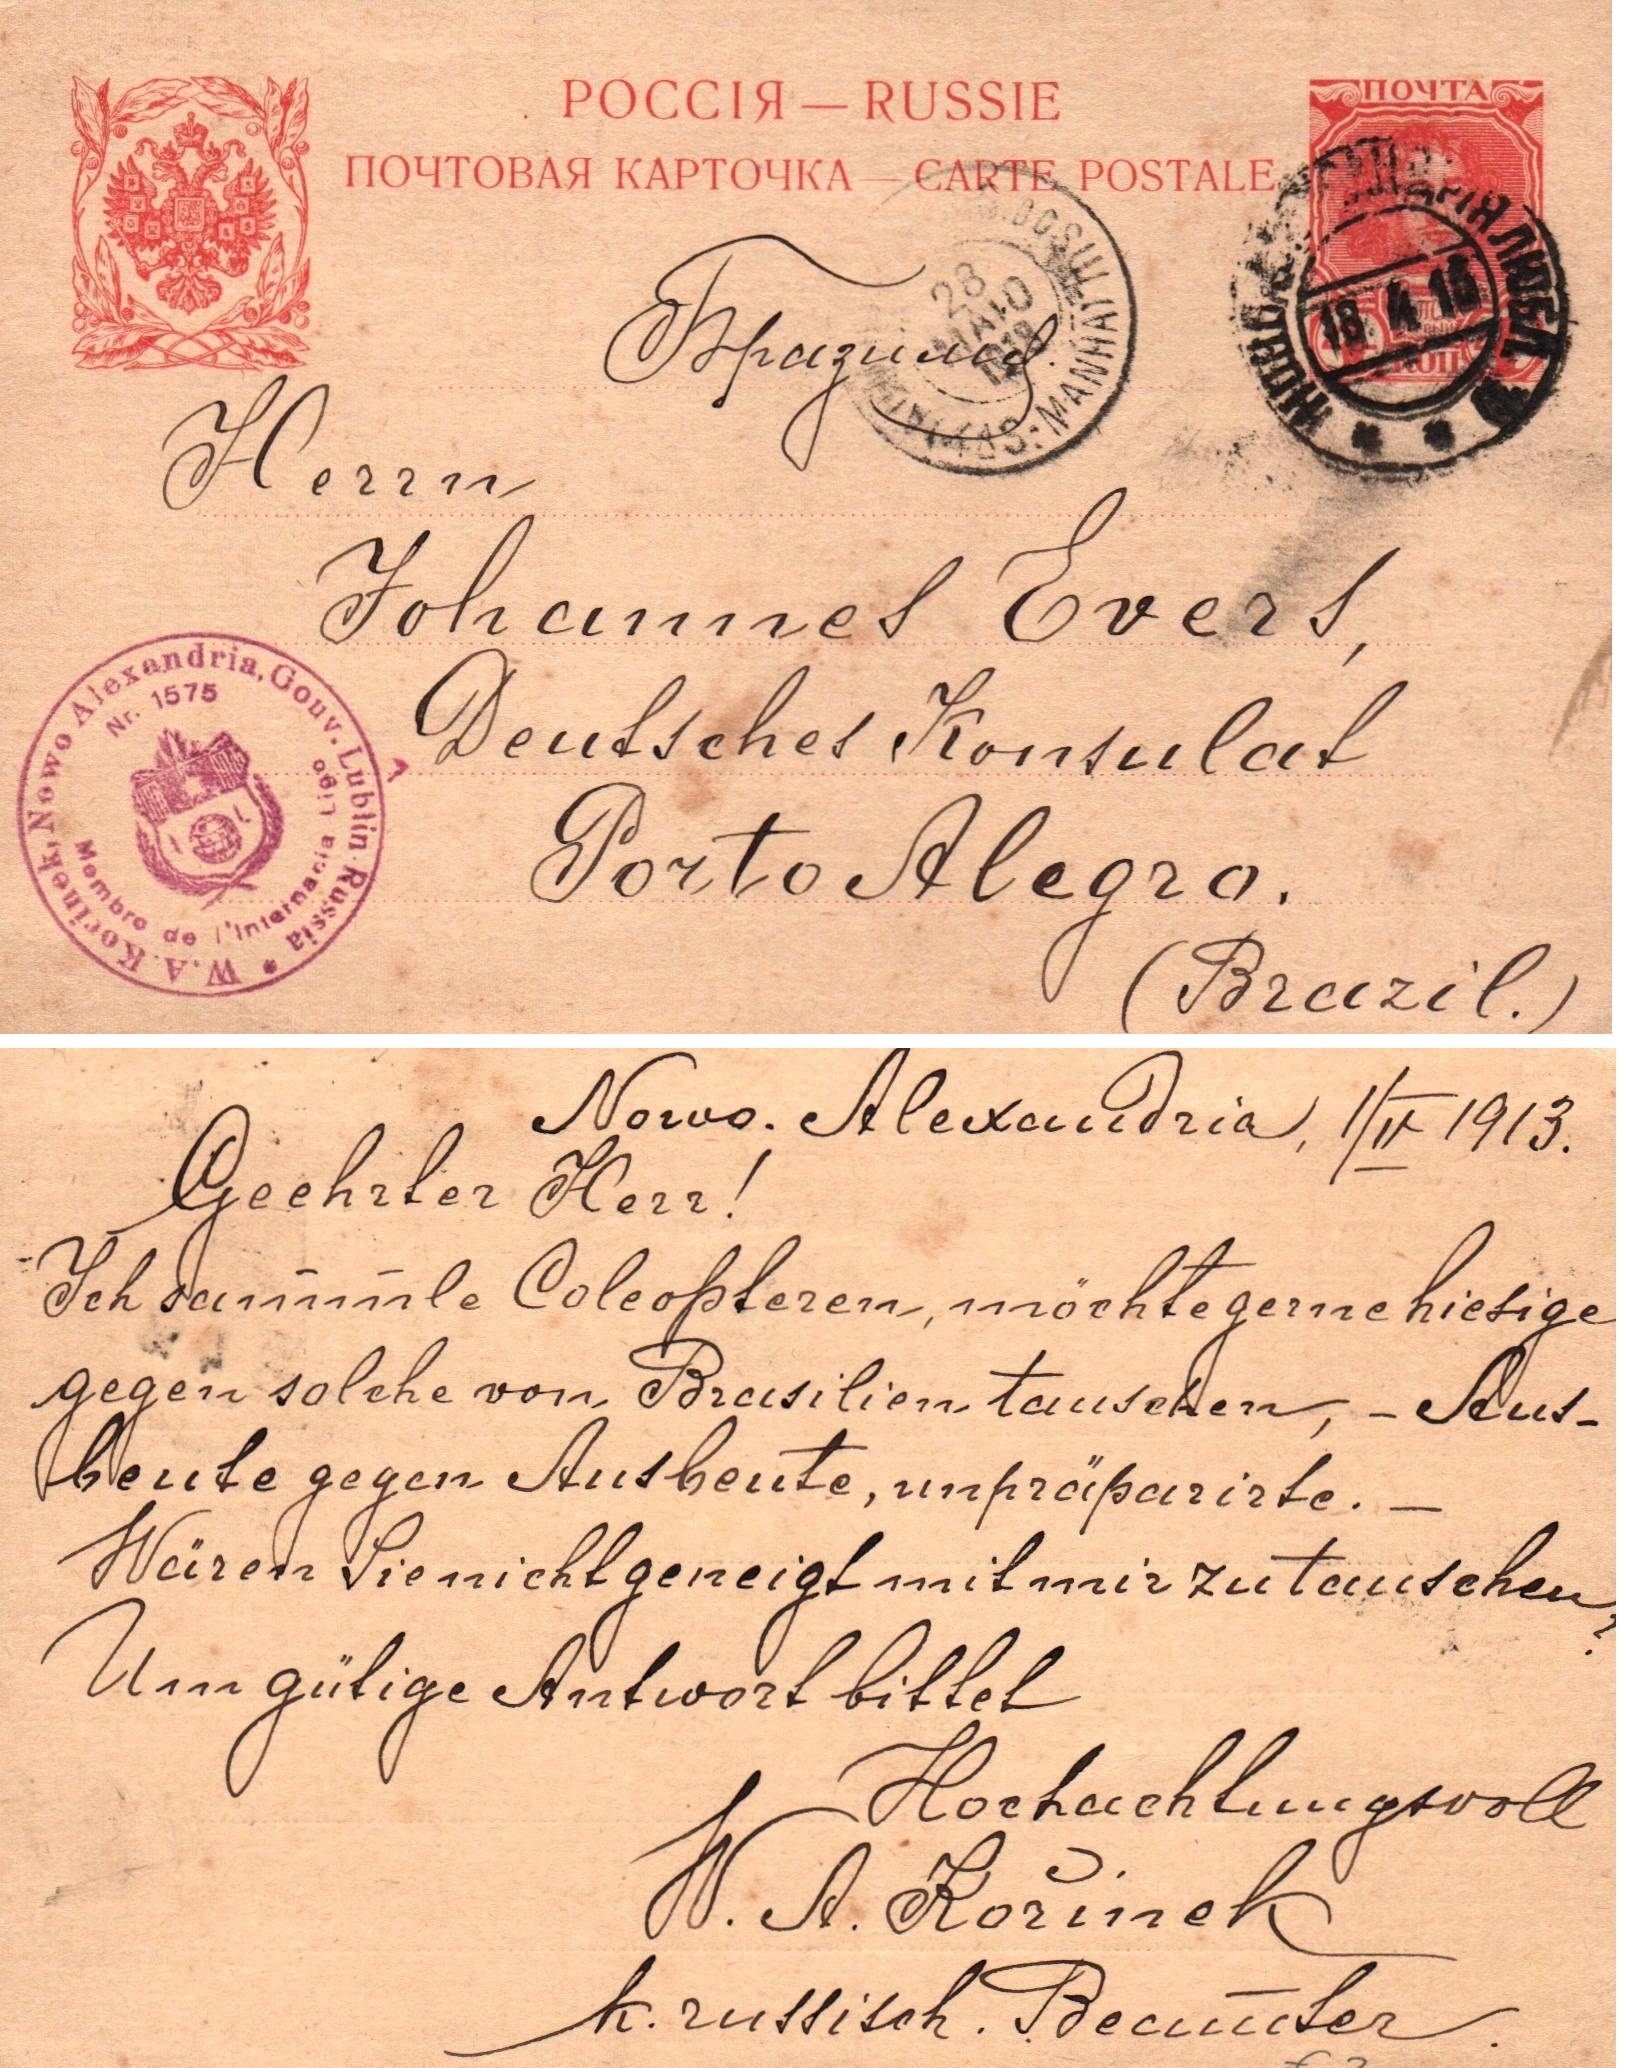 РОССІЯ — RUSSIE
ПОЧТОВАЯ КАРТОЧКА — CARTE POSTALE
ПОЧТА
28
MAIO
18 4 13
КОП
Бразилія.
Herrn
Johannes Evers,
Deutsches Konsulat
Porto Alegro.
(Brazil.)
W. A. Kořinek, Nowo Alexandria, Gouv. Lublin. Russia
Nr. 1575
Membro de l'Internacia Ligo
Nowo. Alexandria, 1/IV 1913.
Geehrter Herr!
Ich sam̄m̄le Coleopteren, möchte gerne hiesige
gegen solche von Brasilien tauschen, - Aus-
beute gegen Ausbeute, unpräparirte. —
Wären Sie nicht geneigt mit mir zu tauschen?
Um gütige Antwort bittet
Hochachtungsvoll
W. A. Kořinek
k. russisch. Beam̄ter.